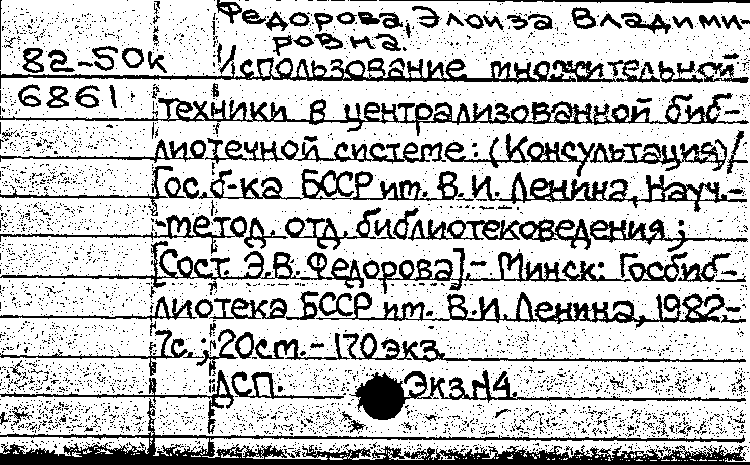 Федорова, Элоиза Владими-
ровна.
82-50к Использование множительной
6861 техники в централизованной биб-
лиотечной системе: (Консультация)/
Гос. б-ка БССР им. В.И. Ленина, Науч.-
-метод. отд. библиотековедения;
[Сост. Э.В. Федорова].- Минск: Госбиб-
лиотека БССР им. В.И. Ленина, 1982.-
7с.; 20см.- 170экз.
ДСП. Экз.№4.